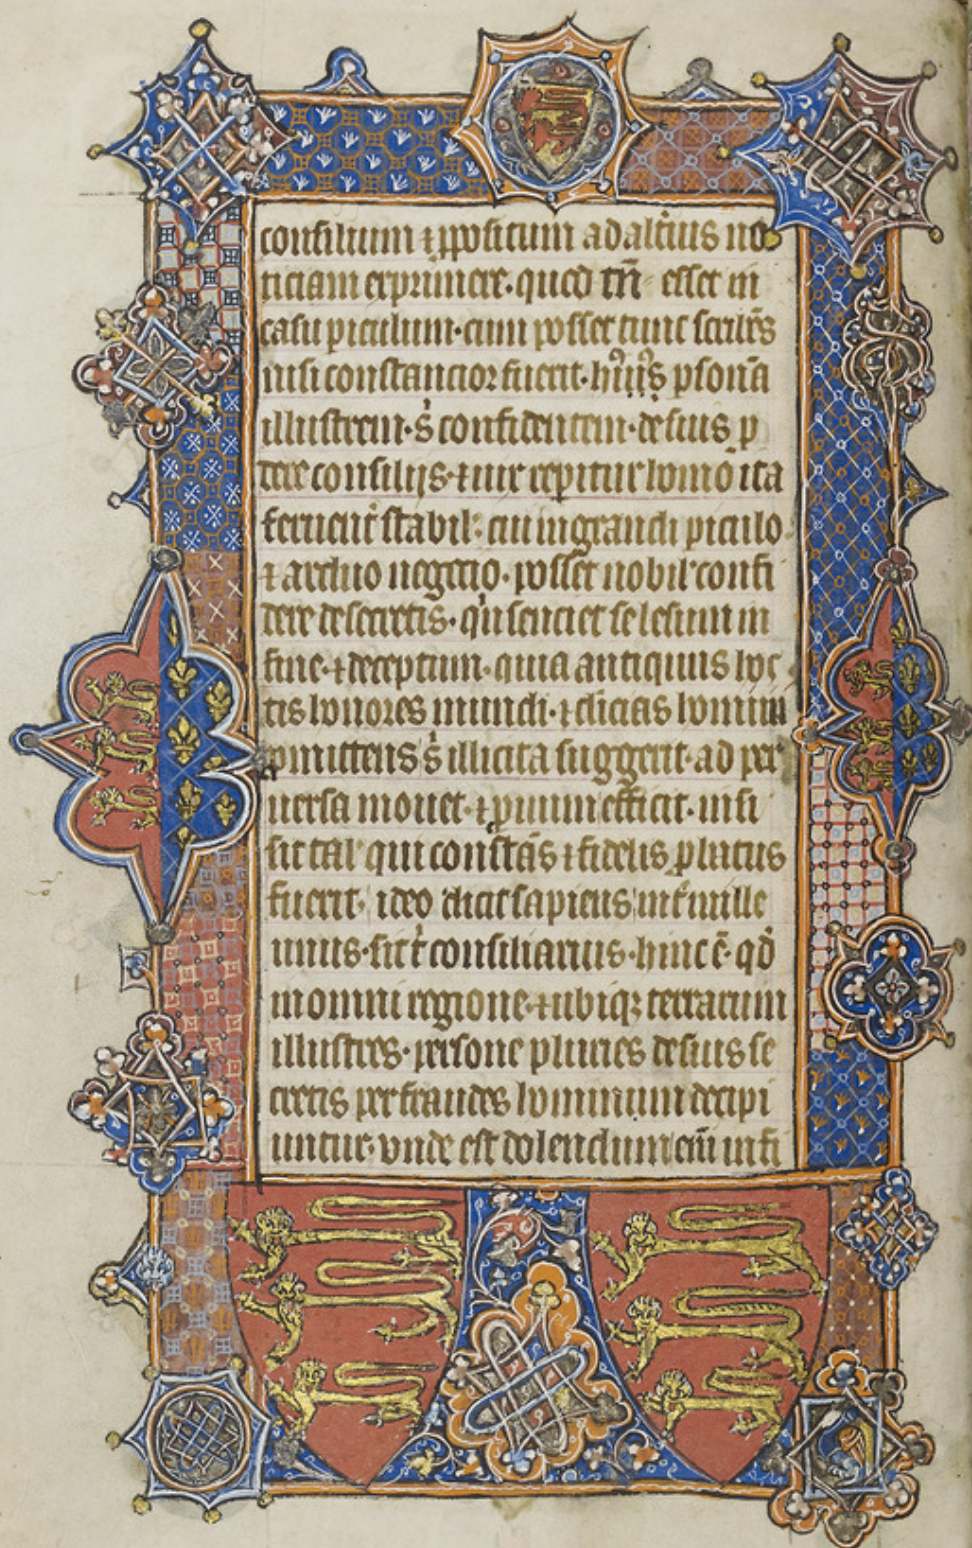 consilium ⁊ ꝓpositum ad alt̾ius no
ticiam exprimere. quod tn̄ esset in
casu piculum. cum posset tunc scribēs
nisi constancior fuerit. hꝰiꝰ ꝑsonā
illustrem. s̾ confidentem. de suis ꝑ
dere consilijs. ⁊ uix repitur homo ita
feruent̾ stabil᷒. cui in grandi piculo
⁊ arduo negocio. posset nobil᷒ confi
dere de secretis. qͥ senciet se lesum in
fine. ⁊ deceptum. quia antiquus hos
tis honores mundi. ⁊ diicias homini
ꝓmittens s̾ illicita suggerit. ad per
uersa mouet. ⁊ ꝓnum efficit. nisi
sit tal᷒ qui constās ⁊ fidelis ꝓbatus
fuerit. ideo dicit sapiens int̾ mille
unus. sit t̾ consiliarius. hinc ē. qd̾
in omni regione. ⁊ ubiqꝫ terrarum
illustres. persone pluries de suis se
cretis per fraudes hominum decipi
untur. vnde est dolendum cū infi